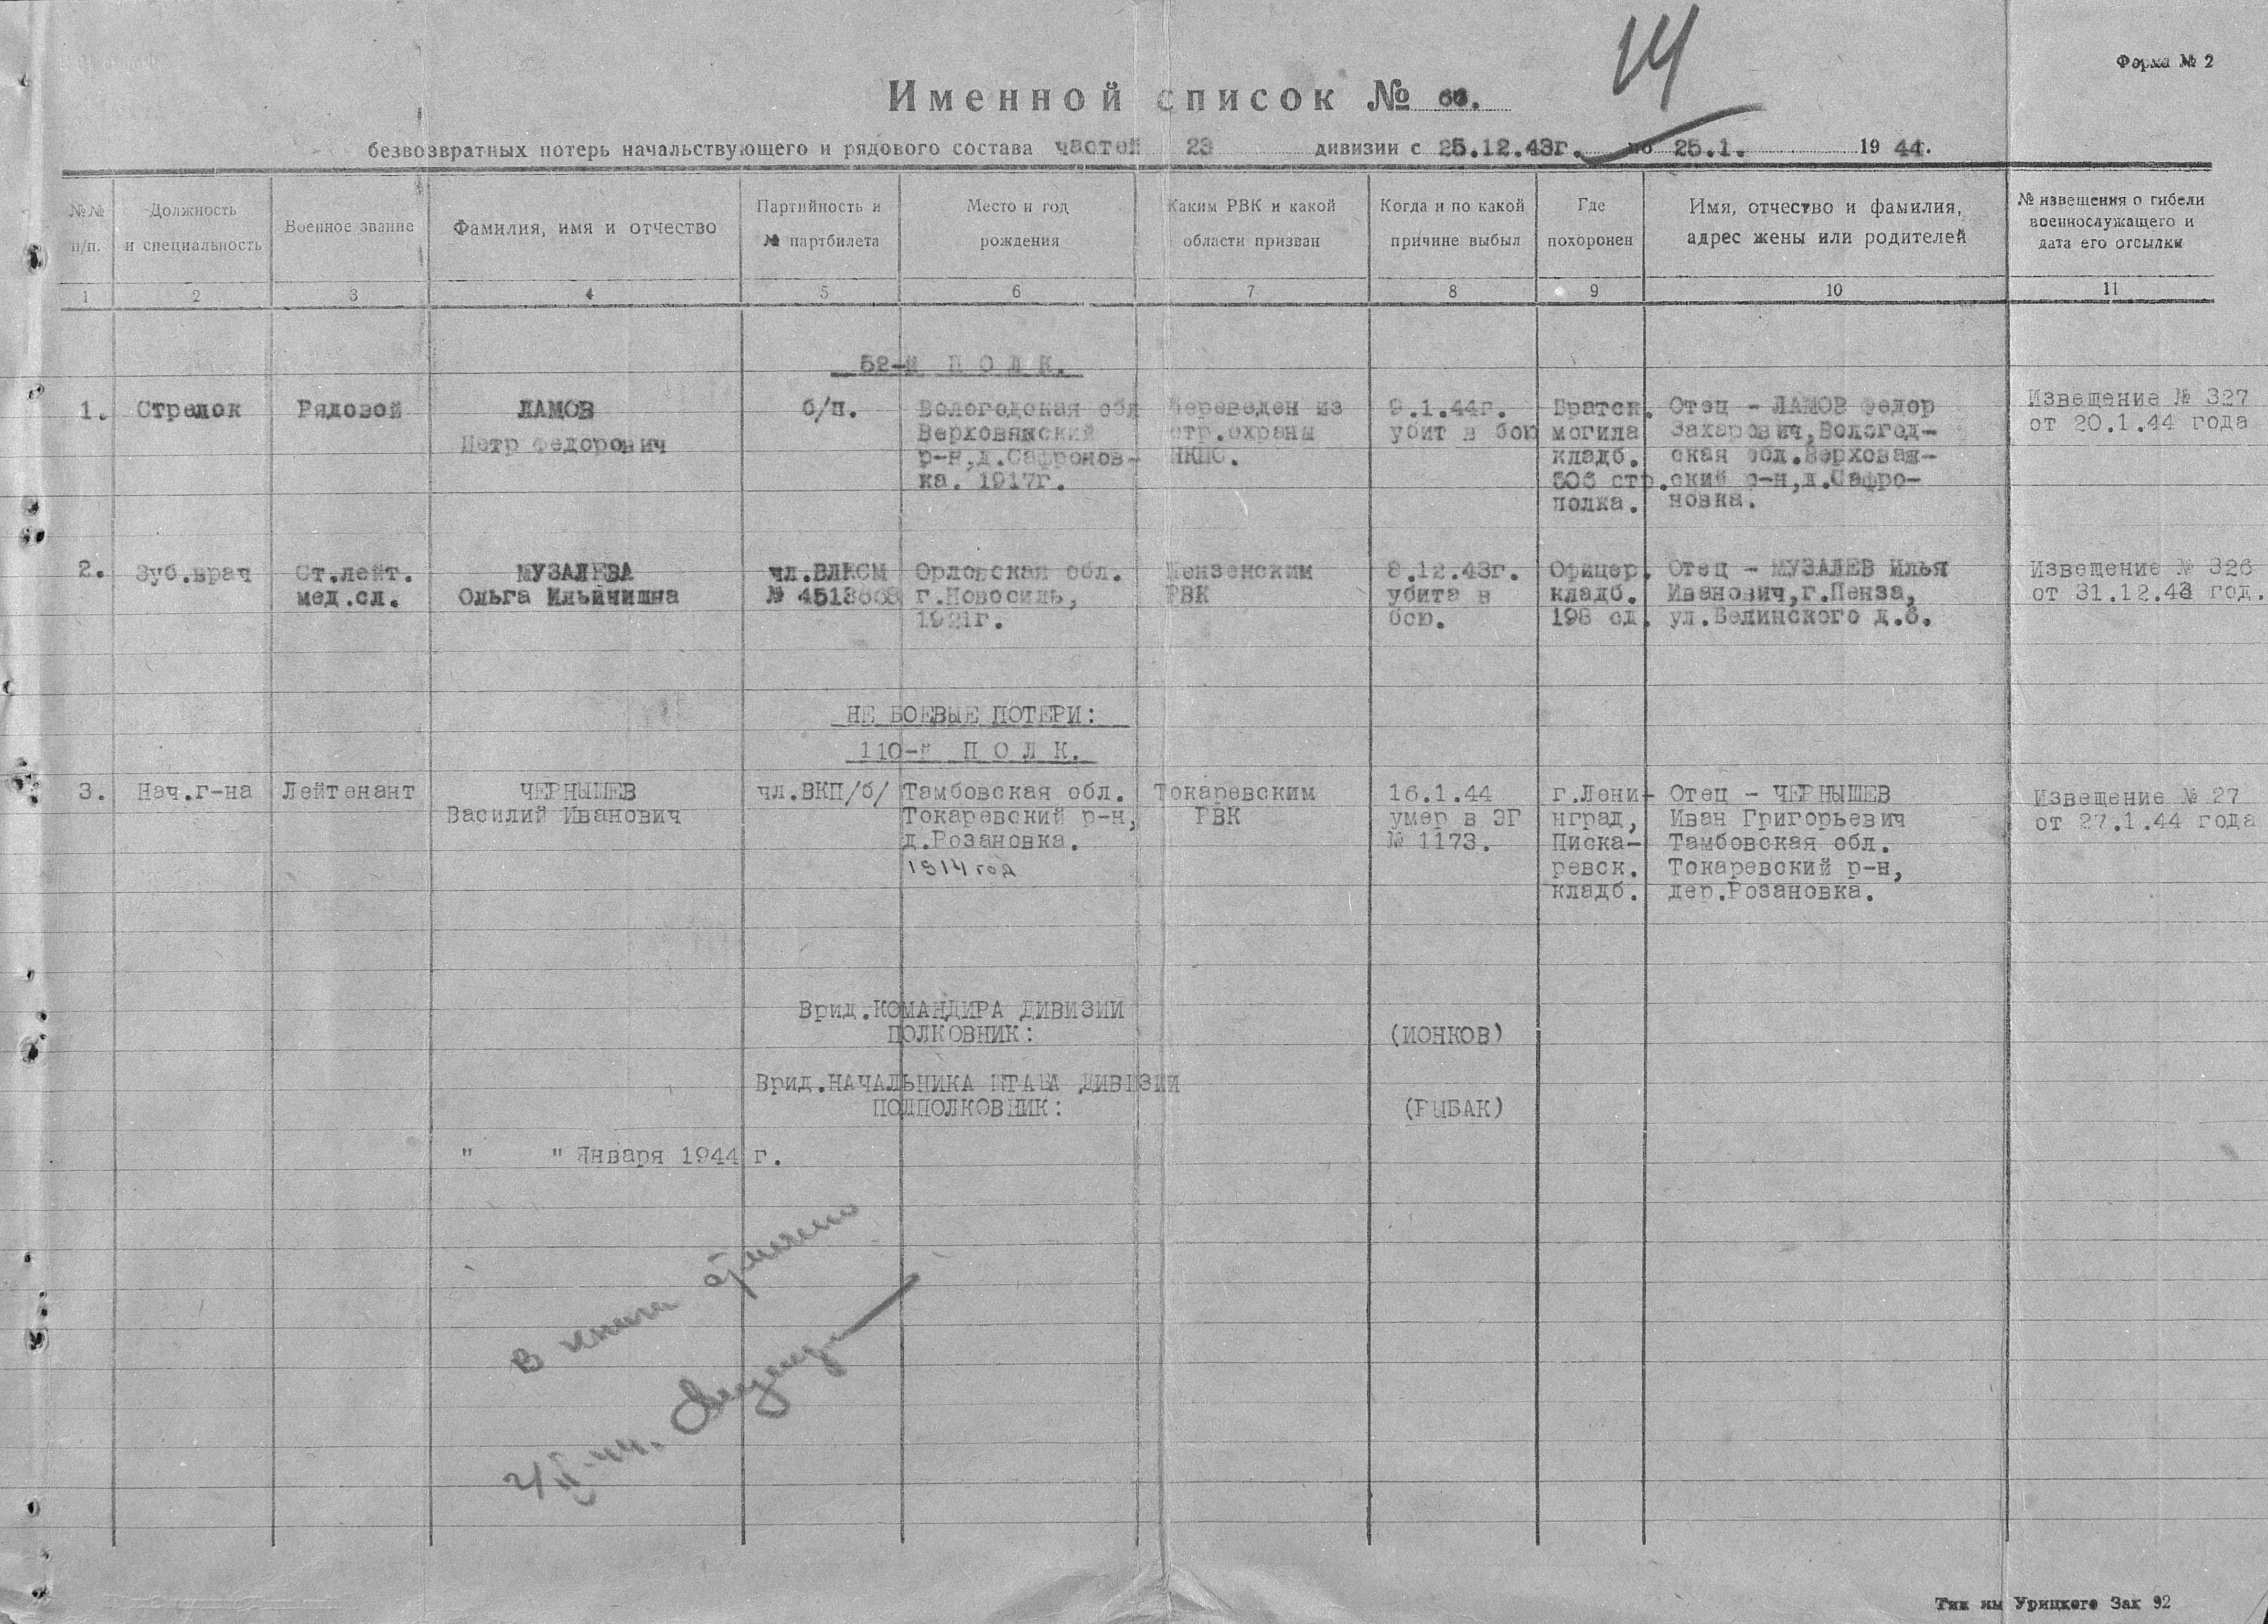 14
Форма № 2
Именной список №
безвозвратных потерь начальствующего и рядового состава частей 23 дивизии с 25.12.43г. по 25.1. 1944.
№№ п/п.
Должность и специальность
Военное звание
Фамилия, имя и отчество
Партийность и № партбилета
Место и год рождения
Каким РВК и какой области призван
Когда и по какой причине выбыл
Где похоронен
Имя, отчество и фамилия, адрес жены или родителей
№ извещения о гибели военнослужащего и дата его отсылки
1 2 3 4 5 6 7 8 9 10 11
52-й ПОЛК.
1. Стрелок Рядовой ЛАМОВ б/п. Вологодская обл Переведен из 9.1.44г. Братск. Отец - ЛАМОВ Федор Извещение № 327
Петр Федорович Верховянский стр.охраны убит в бою могила Захарович, Вологод- от 20.1.44 года
р-н,д.Сафронов- НКПС. кладб. ская обл.Верховаж-
ка. 1917г. 506 стр. ский р-н,д.Сафро-
полка. новка.
2. Зуб.врач Ст.лейт. МУЗАЛЕВА чл.ВЛКСМ Орловская обл. Пензенским 8.12.43г. Офицер. Отец - МУЗАЛЕВ Илья Извещение № 326
мед.сл. Ольга Ильинишна № г.Новосиль, РВК убита в кладб. Иванович,г.Пенза, от 31.12.43 год.
1921г. бою. 198 сд. ул.Белинского д.6.
НЕ БОЕВЫЕ ПОТЕРИ:
110-й ПОЛК.
3. Нач.г-на Лейтенант ЧЕРНЫШЕВ чл.ВКП/б/ Тамбовская обл. Токаревским 16.1.44 г.Лени- Отец - ЧЕРНЫШЕВ Извещение № 27
Василий Иванович Токаревский р-н, РВК умер в ЭГ нград, Иван Григорьевич от 27.1.44 года
д.Розановка. № 1173. Писка- Тамбовская обл.
1914 год ревск. Токаревский р-н,
кладб. дер.Розановка.
Врид.КОМАНДИРА ДИВИЗИИ
ПОЛКОВНИК: (ИОНКОВ)
Врид.НАЧАЛЬНИКА ШТАБА ДИВИЗИИ
ПОДПОЛКОВНИК: (РЫБАК)
" " Января 1944 г.
В книга отмечено
Тип им Урицкого Зак 92